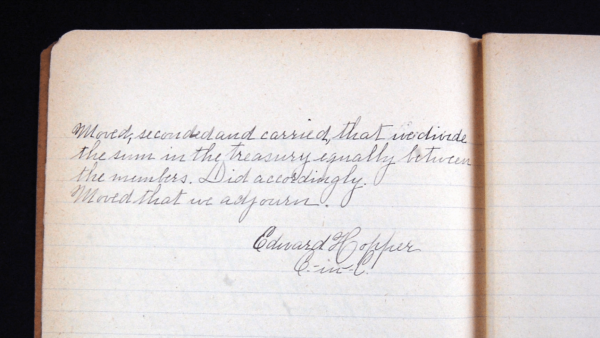 Moved, seconded and carried, that we divide
the sum in the treasury equally between
the members. Did accordingly.
Moved that we adjourn.
Edward Hopper
C-in-C.